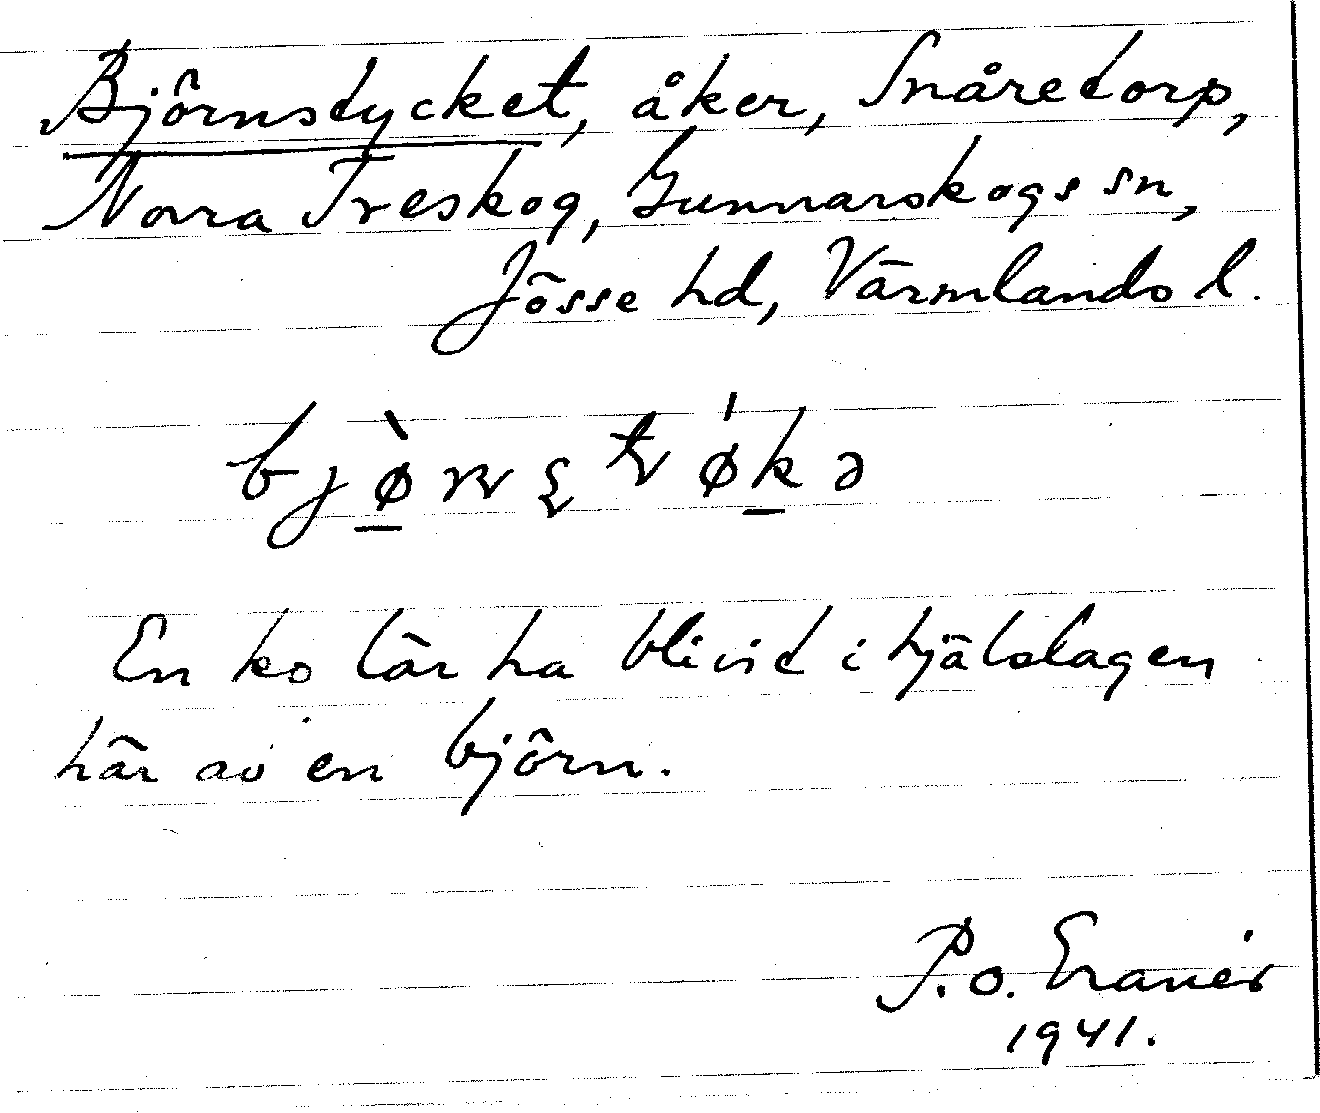 Björnstycket, åker, Snåretorp,
Norra Treskog, Gunnarskogs sn,
Jösse hd, Värmlands l.
En ko lär ha blivit ihjälslagen
här av en björn.
P. O.
1941.